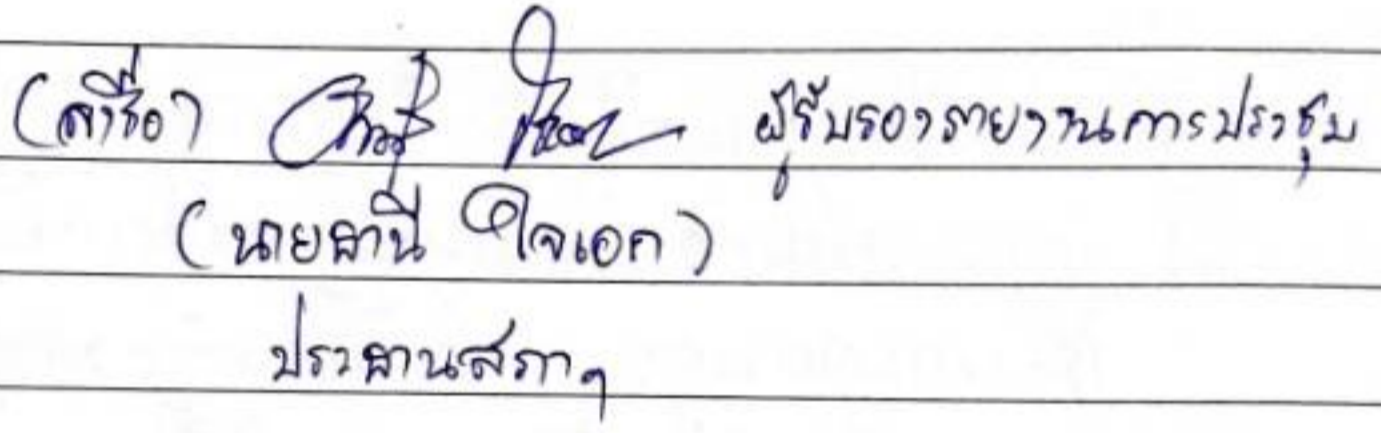 (ลงชื่อ) ธานี ใจเอก ผู้รับรองรายงานการประชุม
(นายธานี ใจเอก)
ประธานสภาฯ